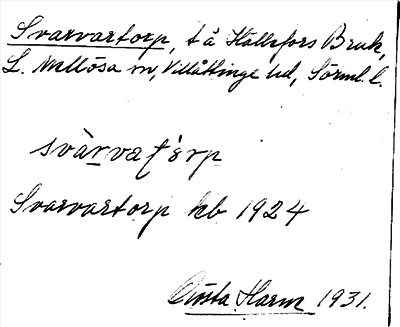 Svarvartorp, t å Hällefors Bruk,
L. Mellösa sn, Villåttinge hd, Sörml. l.
svàrvat̀ʹorp
Svarvartorp kb 1924
Gösta Harm 1931.